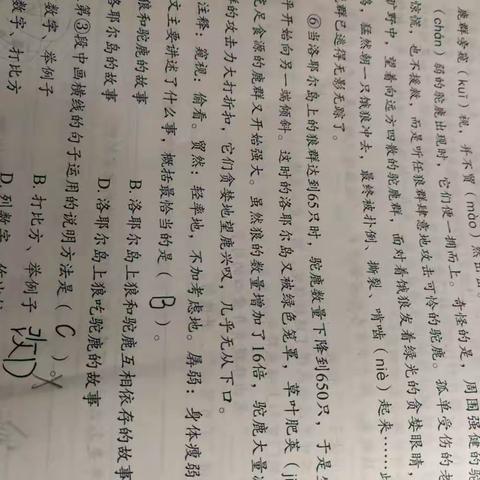 鹿群旁窥（kuī）视，并不贸（mào）然出
（chán）弱的驼鹿出现时，它们便一拥而上。奇怪的是，周围强健的驼
惊慌，也不援救，而是听任狼群肆意地攻击可怜的驼鹿。孤单受伤的老
旷野中，望着向远方四散的驼鹿群，面对着饿狼发着绿光的贪婪眼睛，
猛然朝一只饿狼冲去，最终被扑倒、撕裂、啃啮（niè）起来……此
群已逃得无影无踪了。
⑥当洛耶尔岛上的狼群达到65只时，驼鹿数量下降到650只，于是
乎开始向另一端倾斜。这时的洛耶尔岛又被绿色笼罩，草叶肥美（jī
充足食源的鹿群又开始强大。虽然狼的数量增加了16倍，驼鹿大量
的攻击力大打折扣，它们贪婪地望鹿兴叹，几乎无从下口。
注释：窥视：偷看。贸然：轻率地，不加考虑地。孱弱：身体瘦弱
文主要讲述了什么事，概括最恰当的是（ B ）。
狼和驼鹿的故事 B. 洛耶尔岛上狼和驼鹿互相依存的故事
洛耶尔岛的故事 D. 洛耶尔岛上狼吃驼鹿的故事
第③段中画横线的句子运用的说明方法是（ C ）。
数字、举例子 B. 打比方、举例子 改D
数字、打比方 D. 列数字